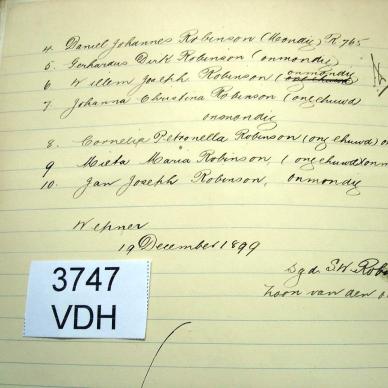 4. Daniel Johannes Robinson (Mondig) R 765
5. Gerhardus Dirk Robinson (onmondig
6 Willem Joseph Robinson (onmondig
7 Johanna Christina Robinson (ongehuwd
onmondig
8. Cornelia Petronella Robinson (ongehuwd) on
9 Mieta Maria Robinson, (ongehuwd) onm
10. Jan Joseph Robinson, onmondig
Wepner
19 December 1899
Sgd. S.W. Robi
zoon van den o
3747
VDH